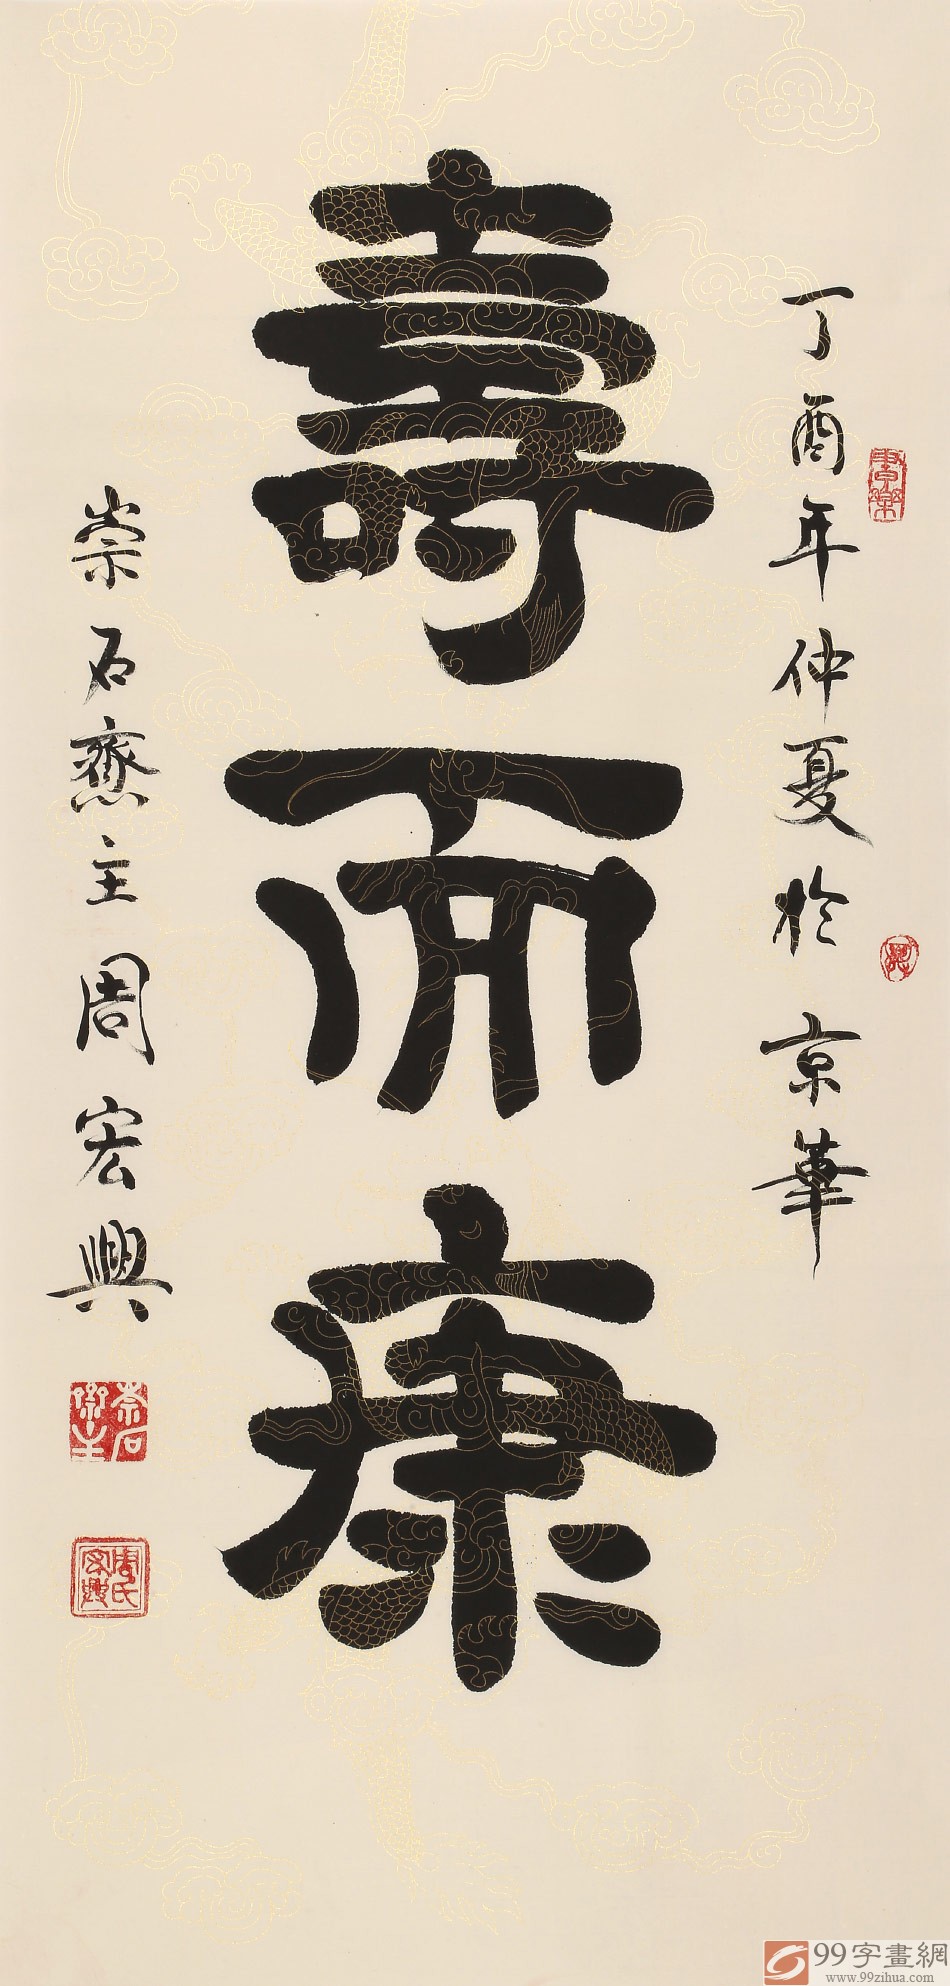 丁酉年仲夏於京華
壽而康
崇石齋主周宏興
崇石齋主
99字畫網
www.99zihua.com